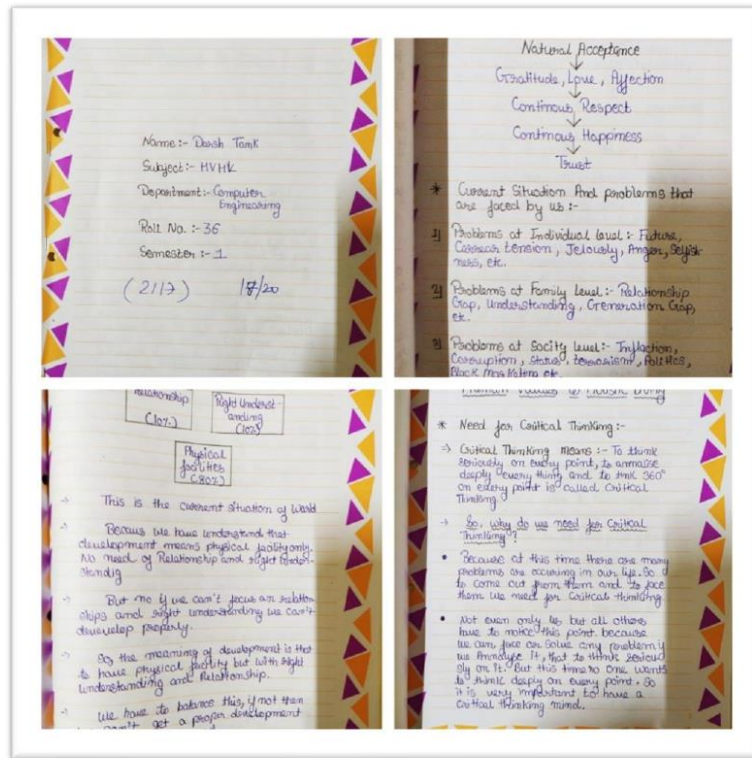 Name:- Darsh Tank
Subject:- HVHK
Department:- Computer
Engineering
Roll No. :- 36
Semester:- 1
(2117) 18/20
Natural Acceptance
Gratitude, Love, Affection
Continous Respect
Continous Happiness
Trust
* Current Situation And problems that
are faced by us :-
1) Problems at Individual level :- Future,
Carrear tension, Jelously, Anger, Selfish-
ness, etc.
2) Problems at Family Level:- Relationship
Gap, Understanding, Grenration Gap,
etc.
3) Problems at Socity level:- Inflaction,
Corruption, Status, terrorism, Politics,
Black Marketing etc.
Relationship
(10%)
Right Underst-
anding
(10%)
Physical
facilities
(80%)
→ This is the current situation of World
→ Becaus we have understand that
development means physical facility only.
No need of Relationship and right Under-
standig
→ But no if we can't focus on relation
ships and right understanding we can't
devevelop properly.
→ So, the meaning of development is that
to have physical facility but with right
understanding and Relationship.
→ We have to balance this, if not then
we can't get a proper development
Human Values to Holistic Living
* Need for Critical Thinking :-
→ Critical Thinking Means :- To think
seriously on every point, to annalise
deeply every thing and to tink 360°
on every point is called Critical
Thinking.
→ So, why do we need for Critical
Thinking?
• Because at this time there are many
problems are occuring in our life. So
to come out from them and to face
them we need for Critical thinking.
• Not even only us but all others
have to notice this point. because
we can face or solve any problem if
we Annalyse it, that to think seriou-
sly on it. But this time no one wants
to think deeply on every point. So
it is very important to have a
critical thinking mind.